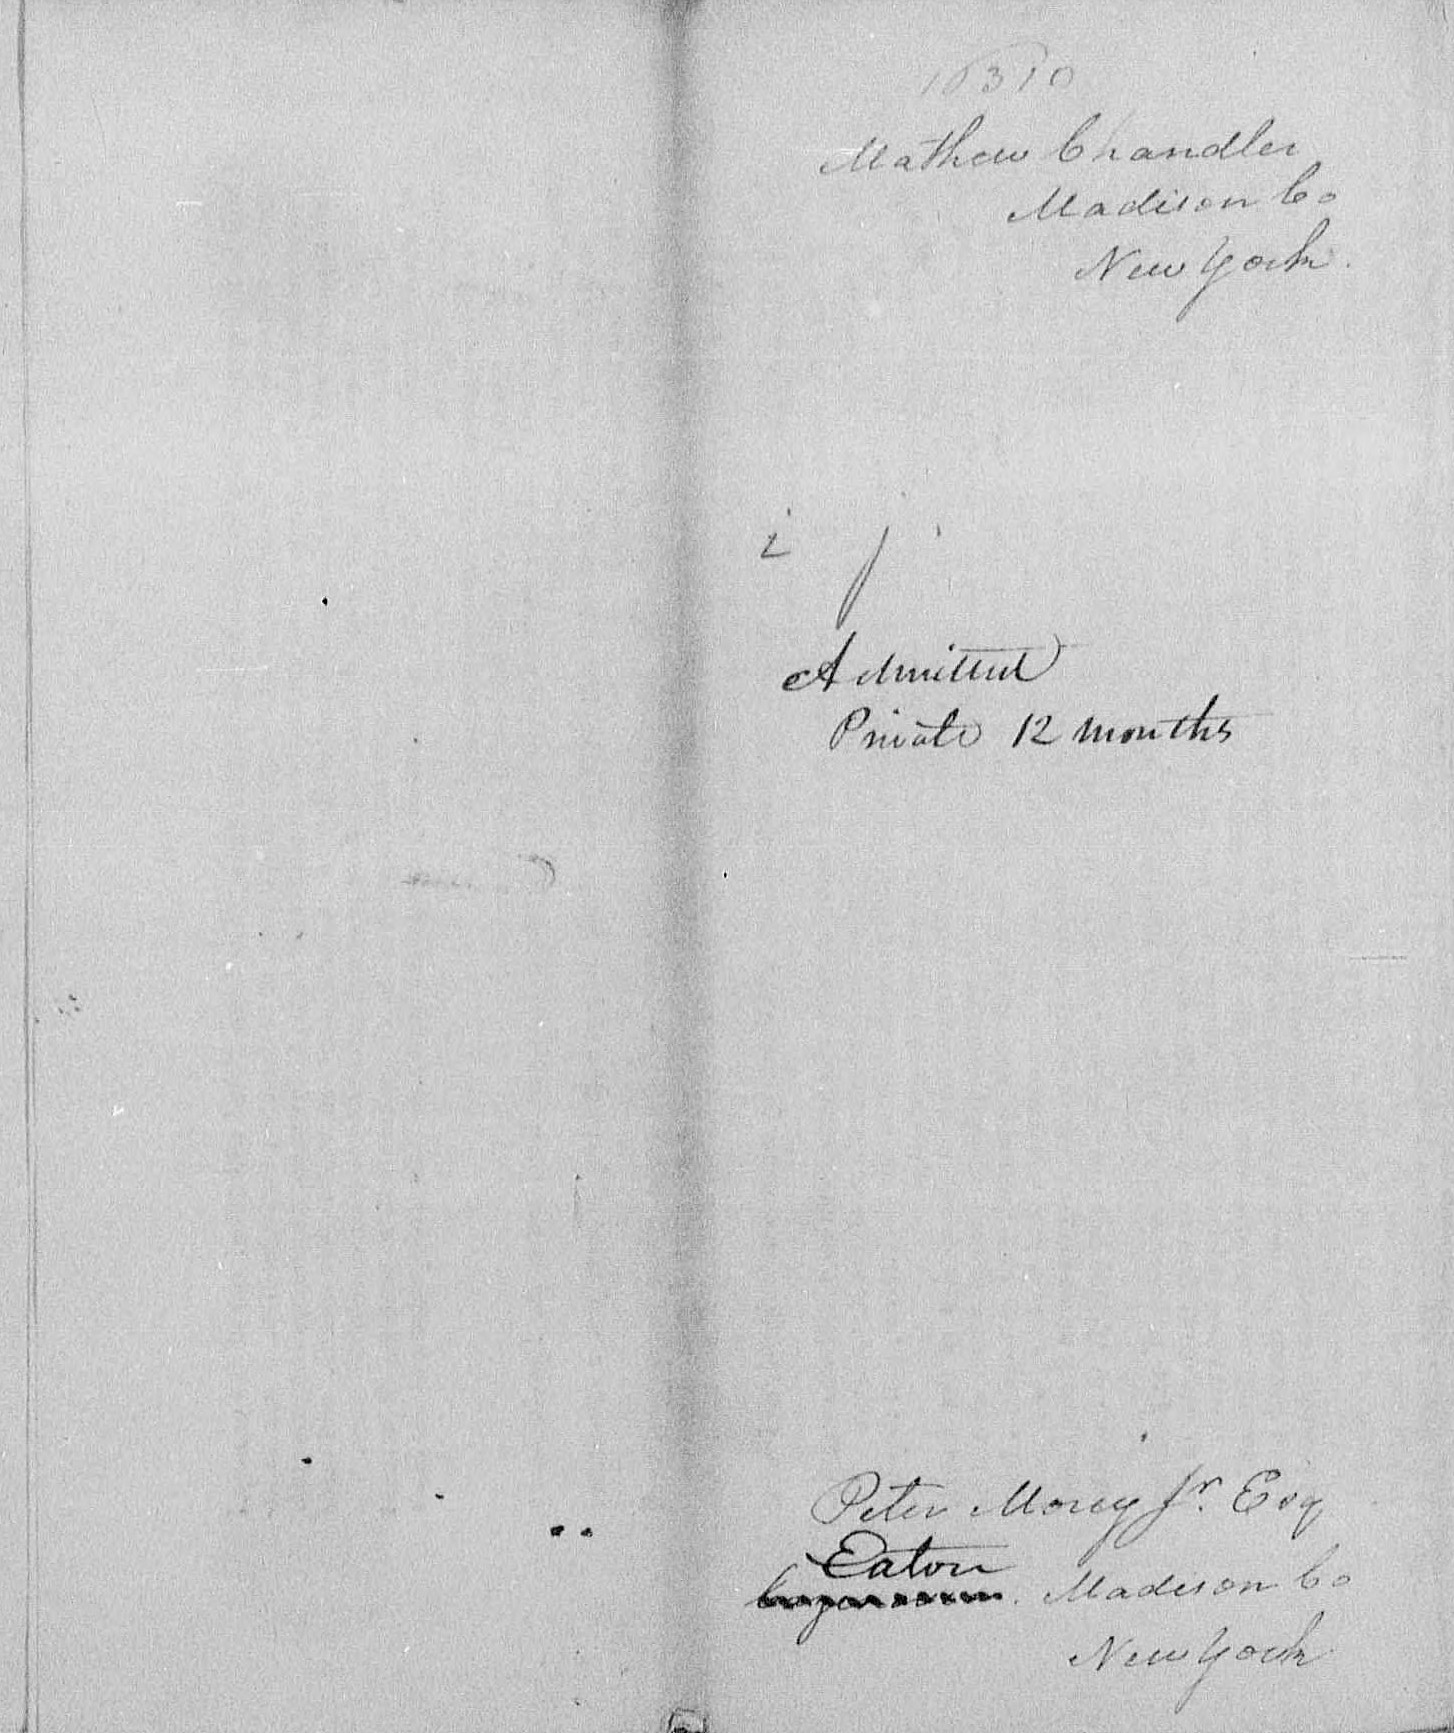 16310
Mathew Chandler
Madison Co
New York.
Admitted
Private 12 months
Peter Morey Jr. Esq
Eaton
Madison Co
New York